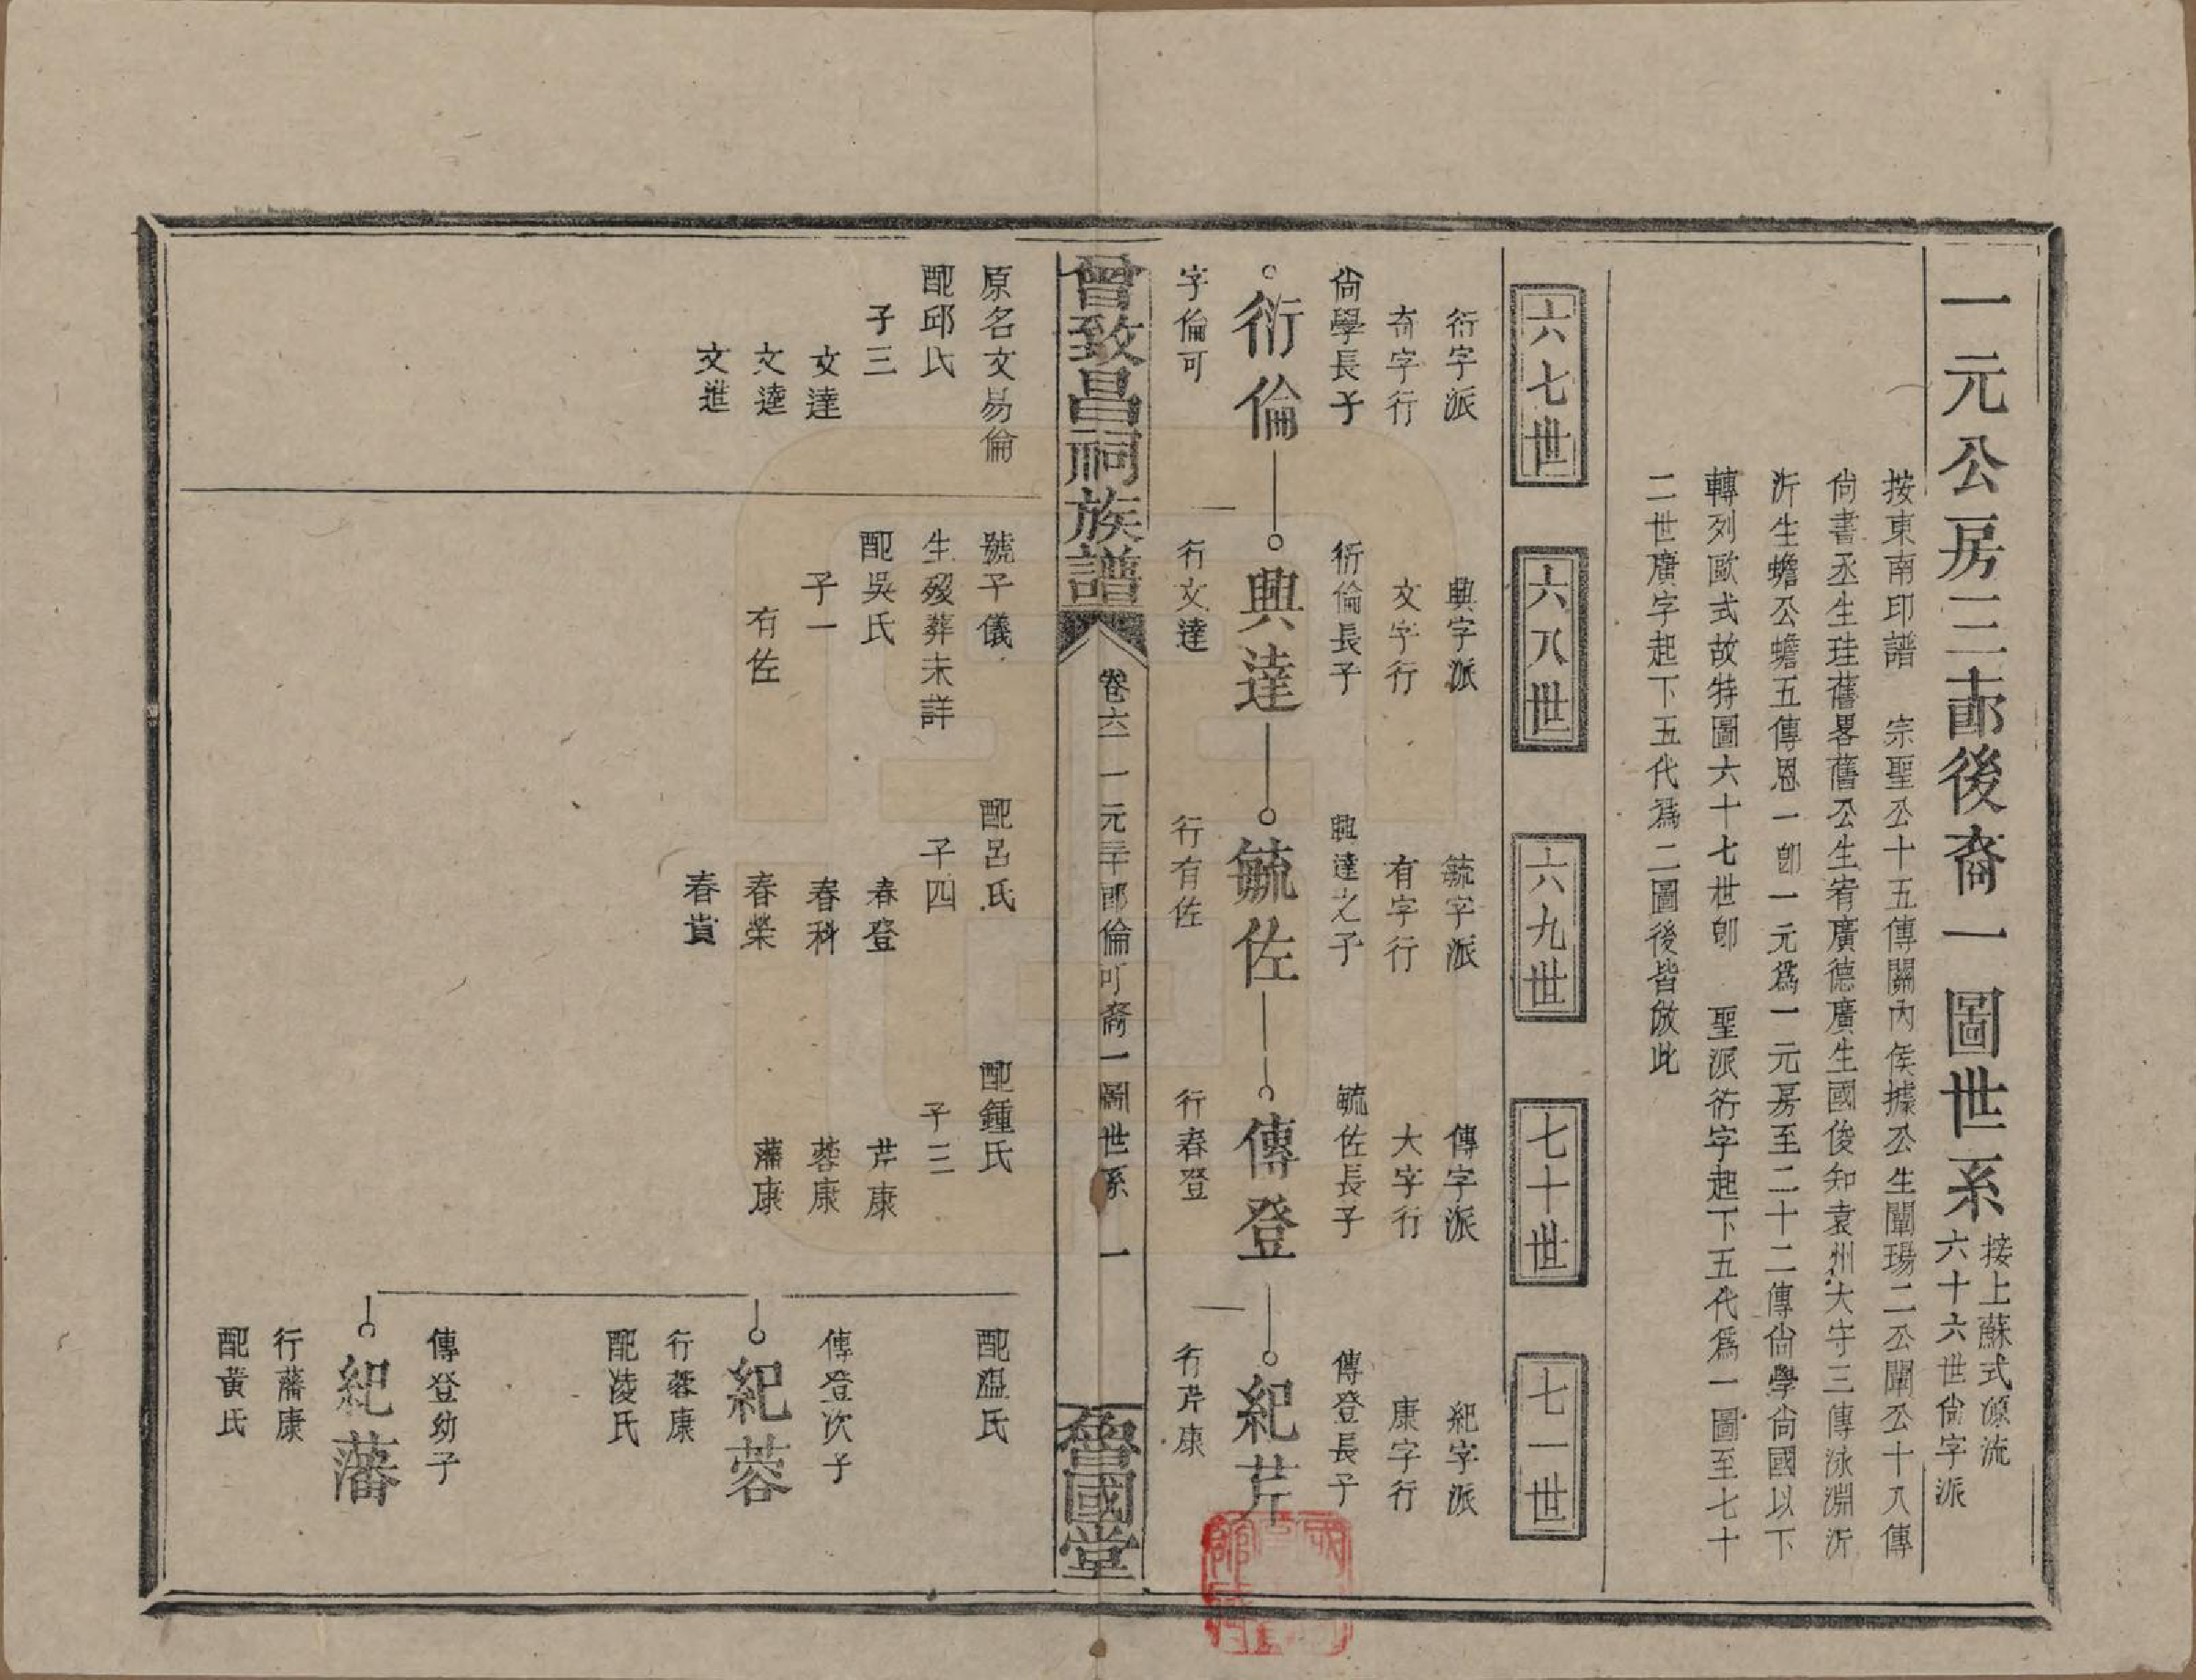 一元公房二十二郎後裔一圖世系
按上蘇式源流
六十六世尙字派
按東南印譜 宗聖公十五傳關內侯據公生闡瑒二公闡公十八傳
尙書丞生珪舊畧舊公生宥廣德廣生國俊知袁州大守三傳泳淵沂
沂生蟾公蟾五傳恩一卽一元爲一元房至二十二傳尙學尙國以下
轉列歐式故特圖六十七世卽 聖派衍字起下五代爲一圖至七十
二世廣字起下五代爲二圖後皆倣此
六七世
六八世
六九世
七十世
七一世
衍字派
奇字行
尙學長子
衍倫
字倫可
興字派
文字行
衍倫長子
興達
行文達
毓字派
有字行
興達之子
毓佐
行有佐
傳字派
大字行
毓佐長子
傳登
行春登
紀字派
康字行
傳登長子
紀芹
行芹康
曾致昌祠族譜
卷六 一元二十二郎倫可裔一圖世系 一
魯國堂
原名文易倫
配邱氏
子三
文達
文逵
文進
號子儀
生歿葬未詳
配吳氏
子一
有佐
配呂氏
子四
春登
春科
春榮
春貴
配鍾氏
子三
芹康
蓉康
藩康
配溫氏
傳登次子
紀蓉
行蓉康
配凌氏
傳登幼子
紀藩
行藩康
配黃氏